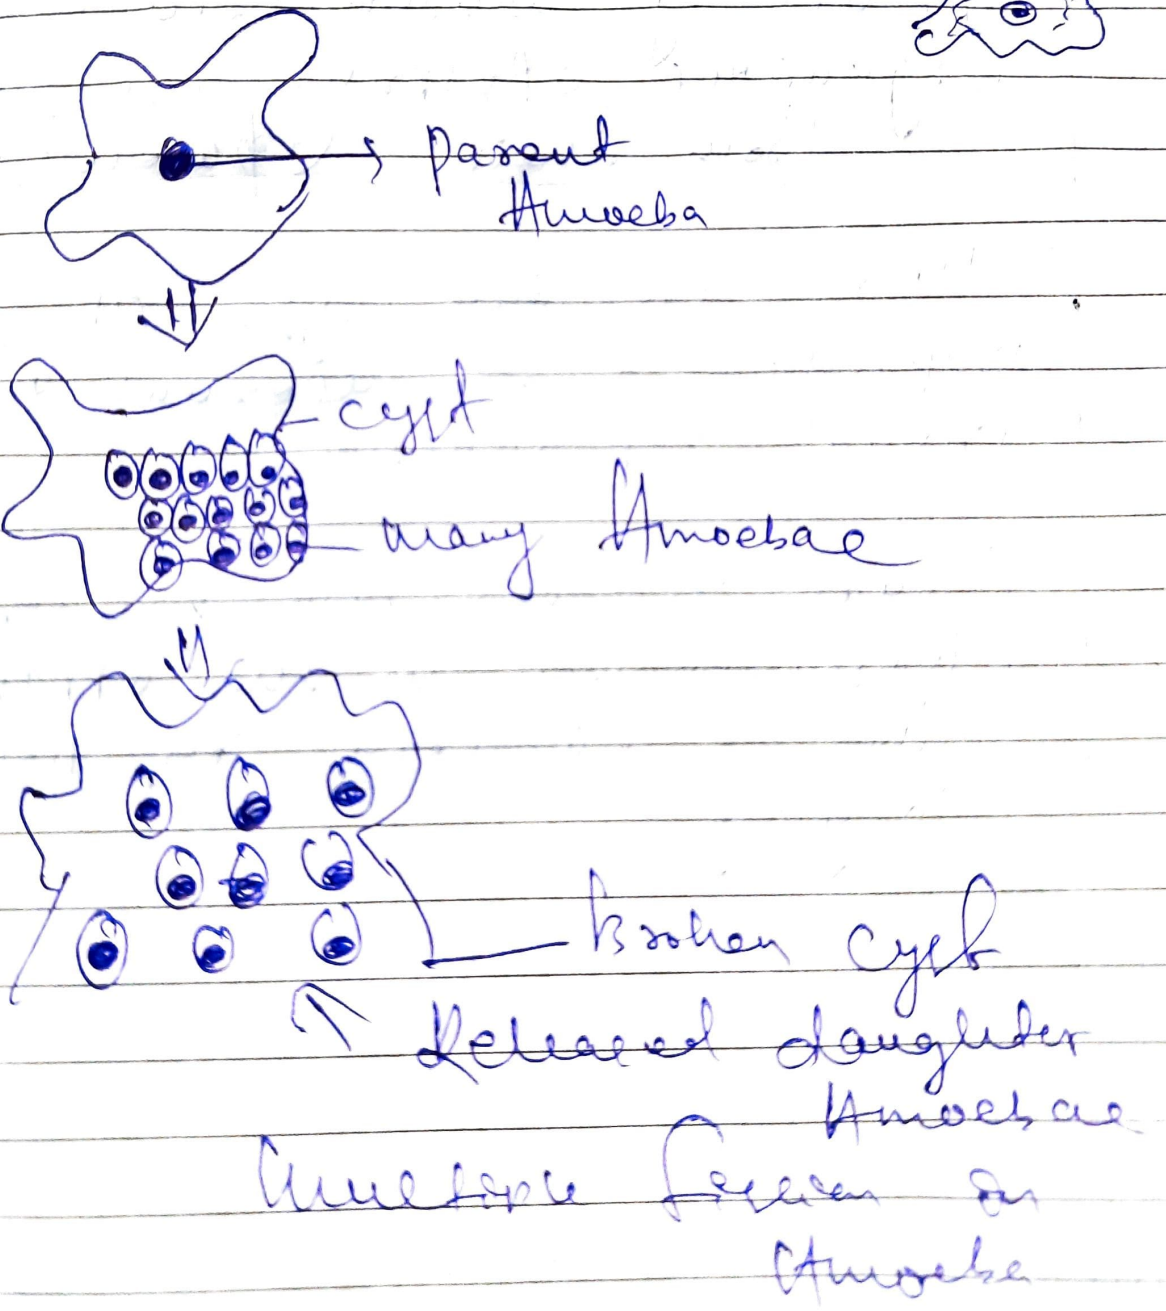 Parent
Amoeba
cyst
many Amoebae
Broken cyst
Released daughter
Amoebae
Multiple fission in
Amoeba